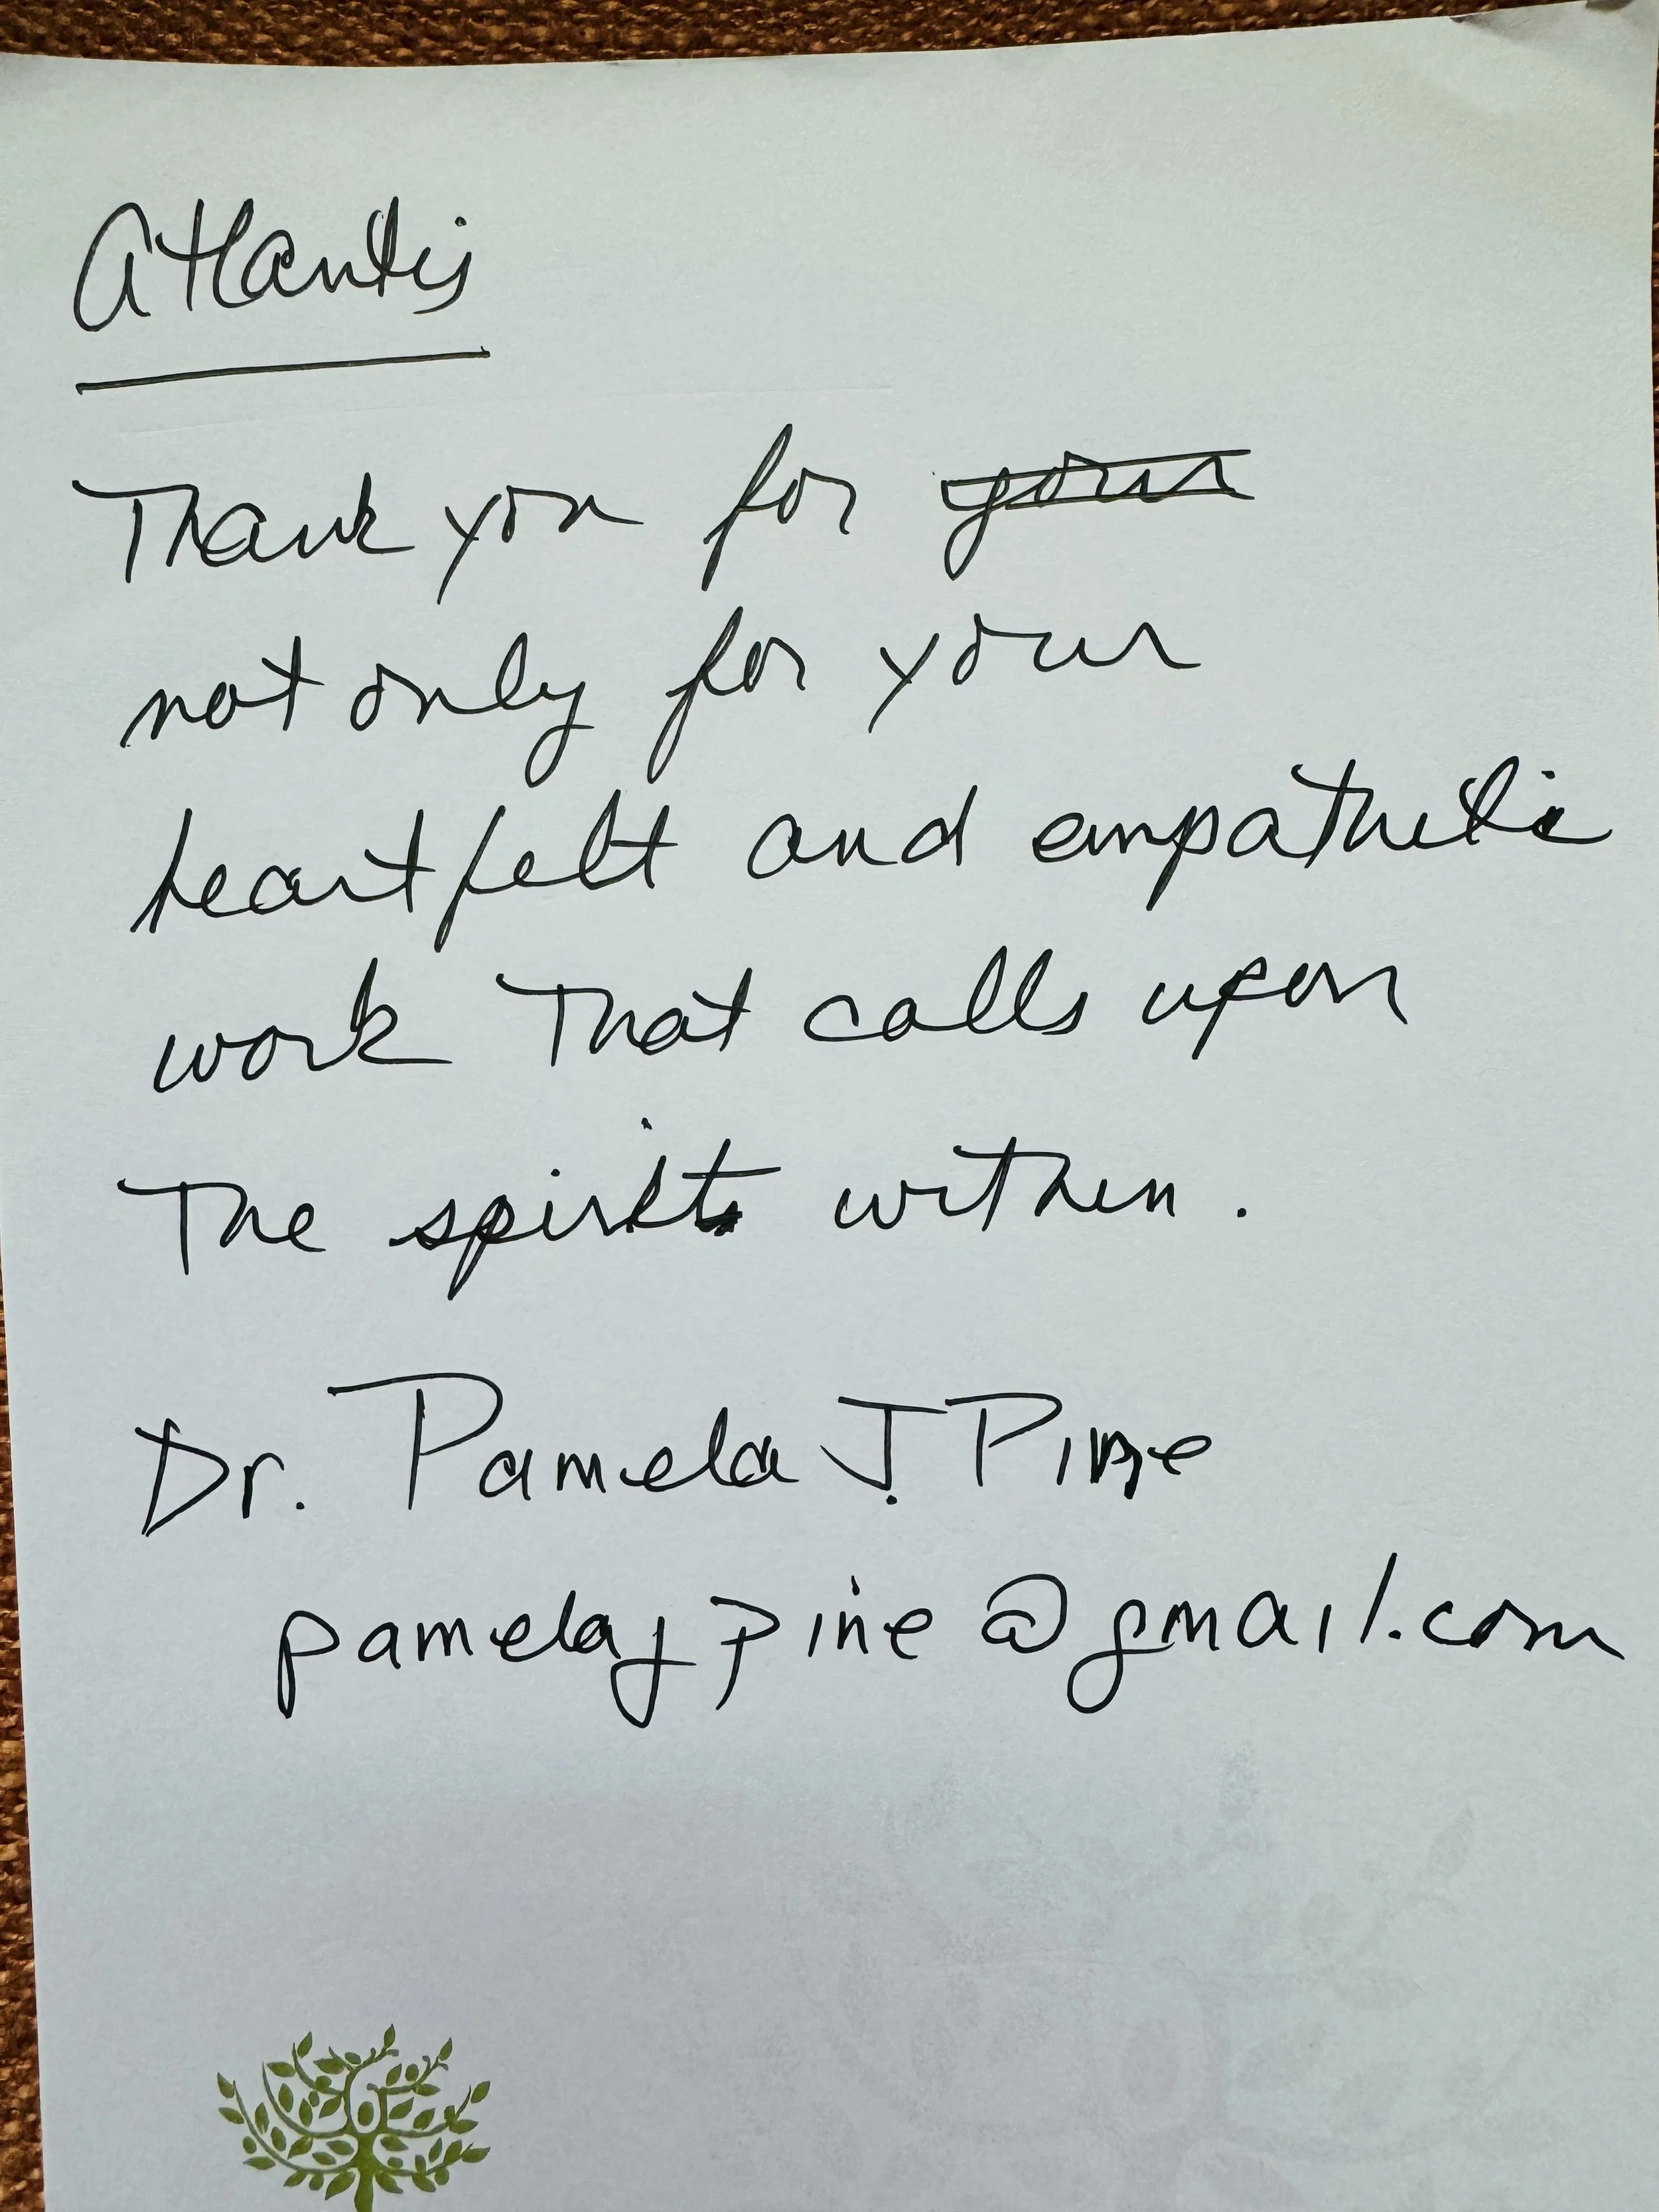 Atlantis
Thank you for your
not only for your
heartfelt and empathetic
work that calls upon
The spirit within.
Dr. Pamela J. Pine
pamelajpine@gmail.com